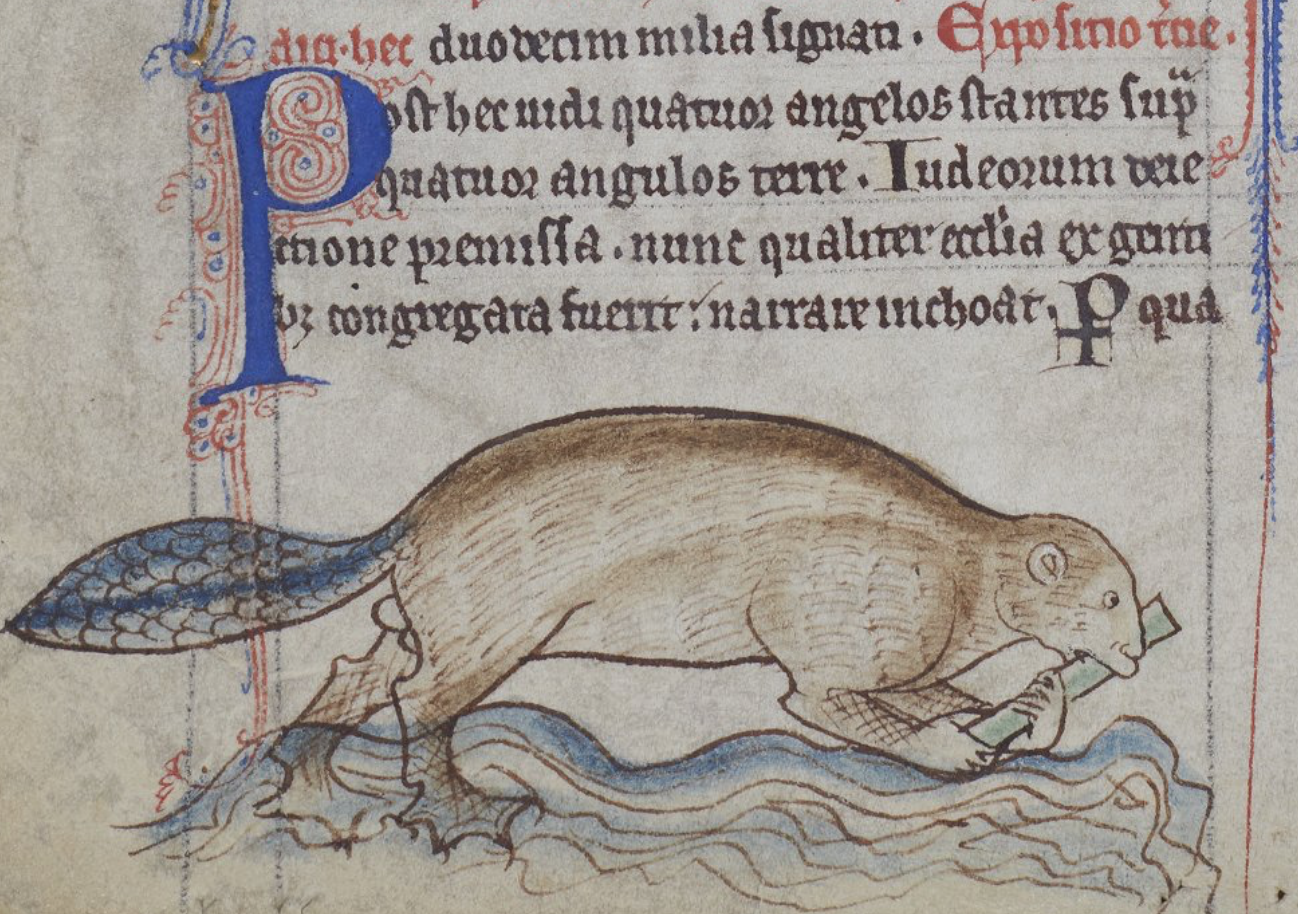 dicit hec duodecim milia signati. Expositio
Post hec uidi quatuor angelos stantes sup
quatuor angulos terre. Iudeorum deie
ctione premissa. nunc qualiter ecclia ex genti
bȝ congregata fuerit: narrare inchoat. P qua